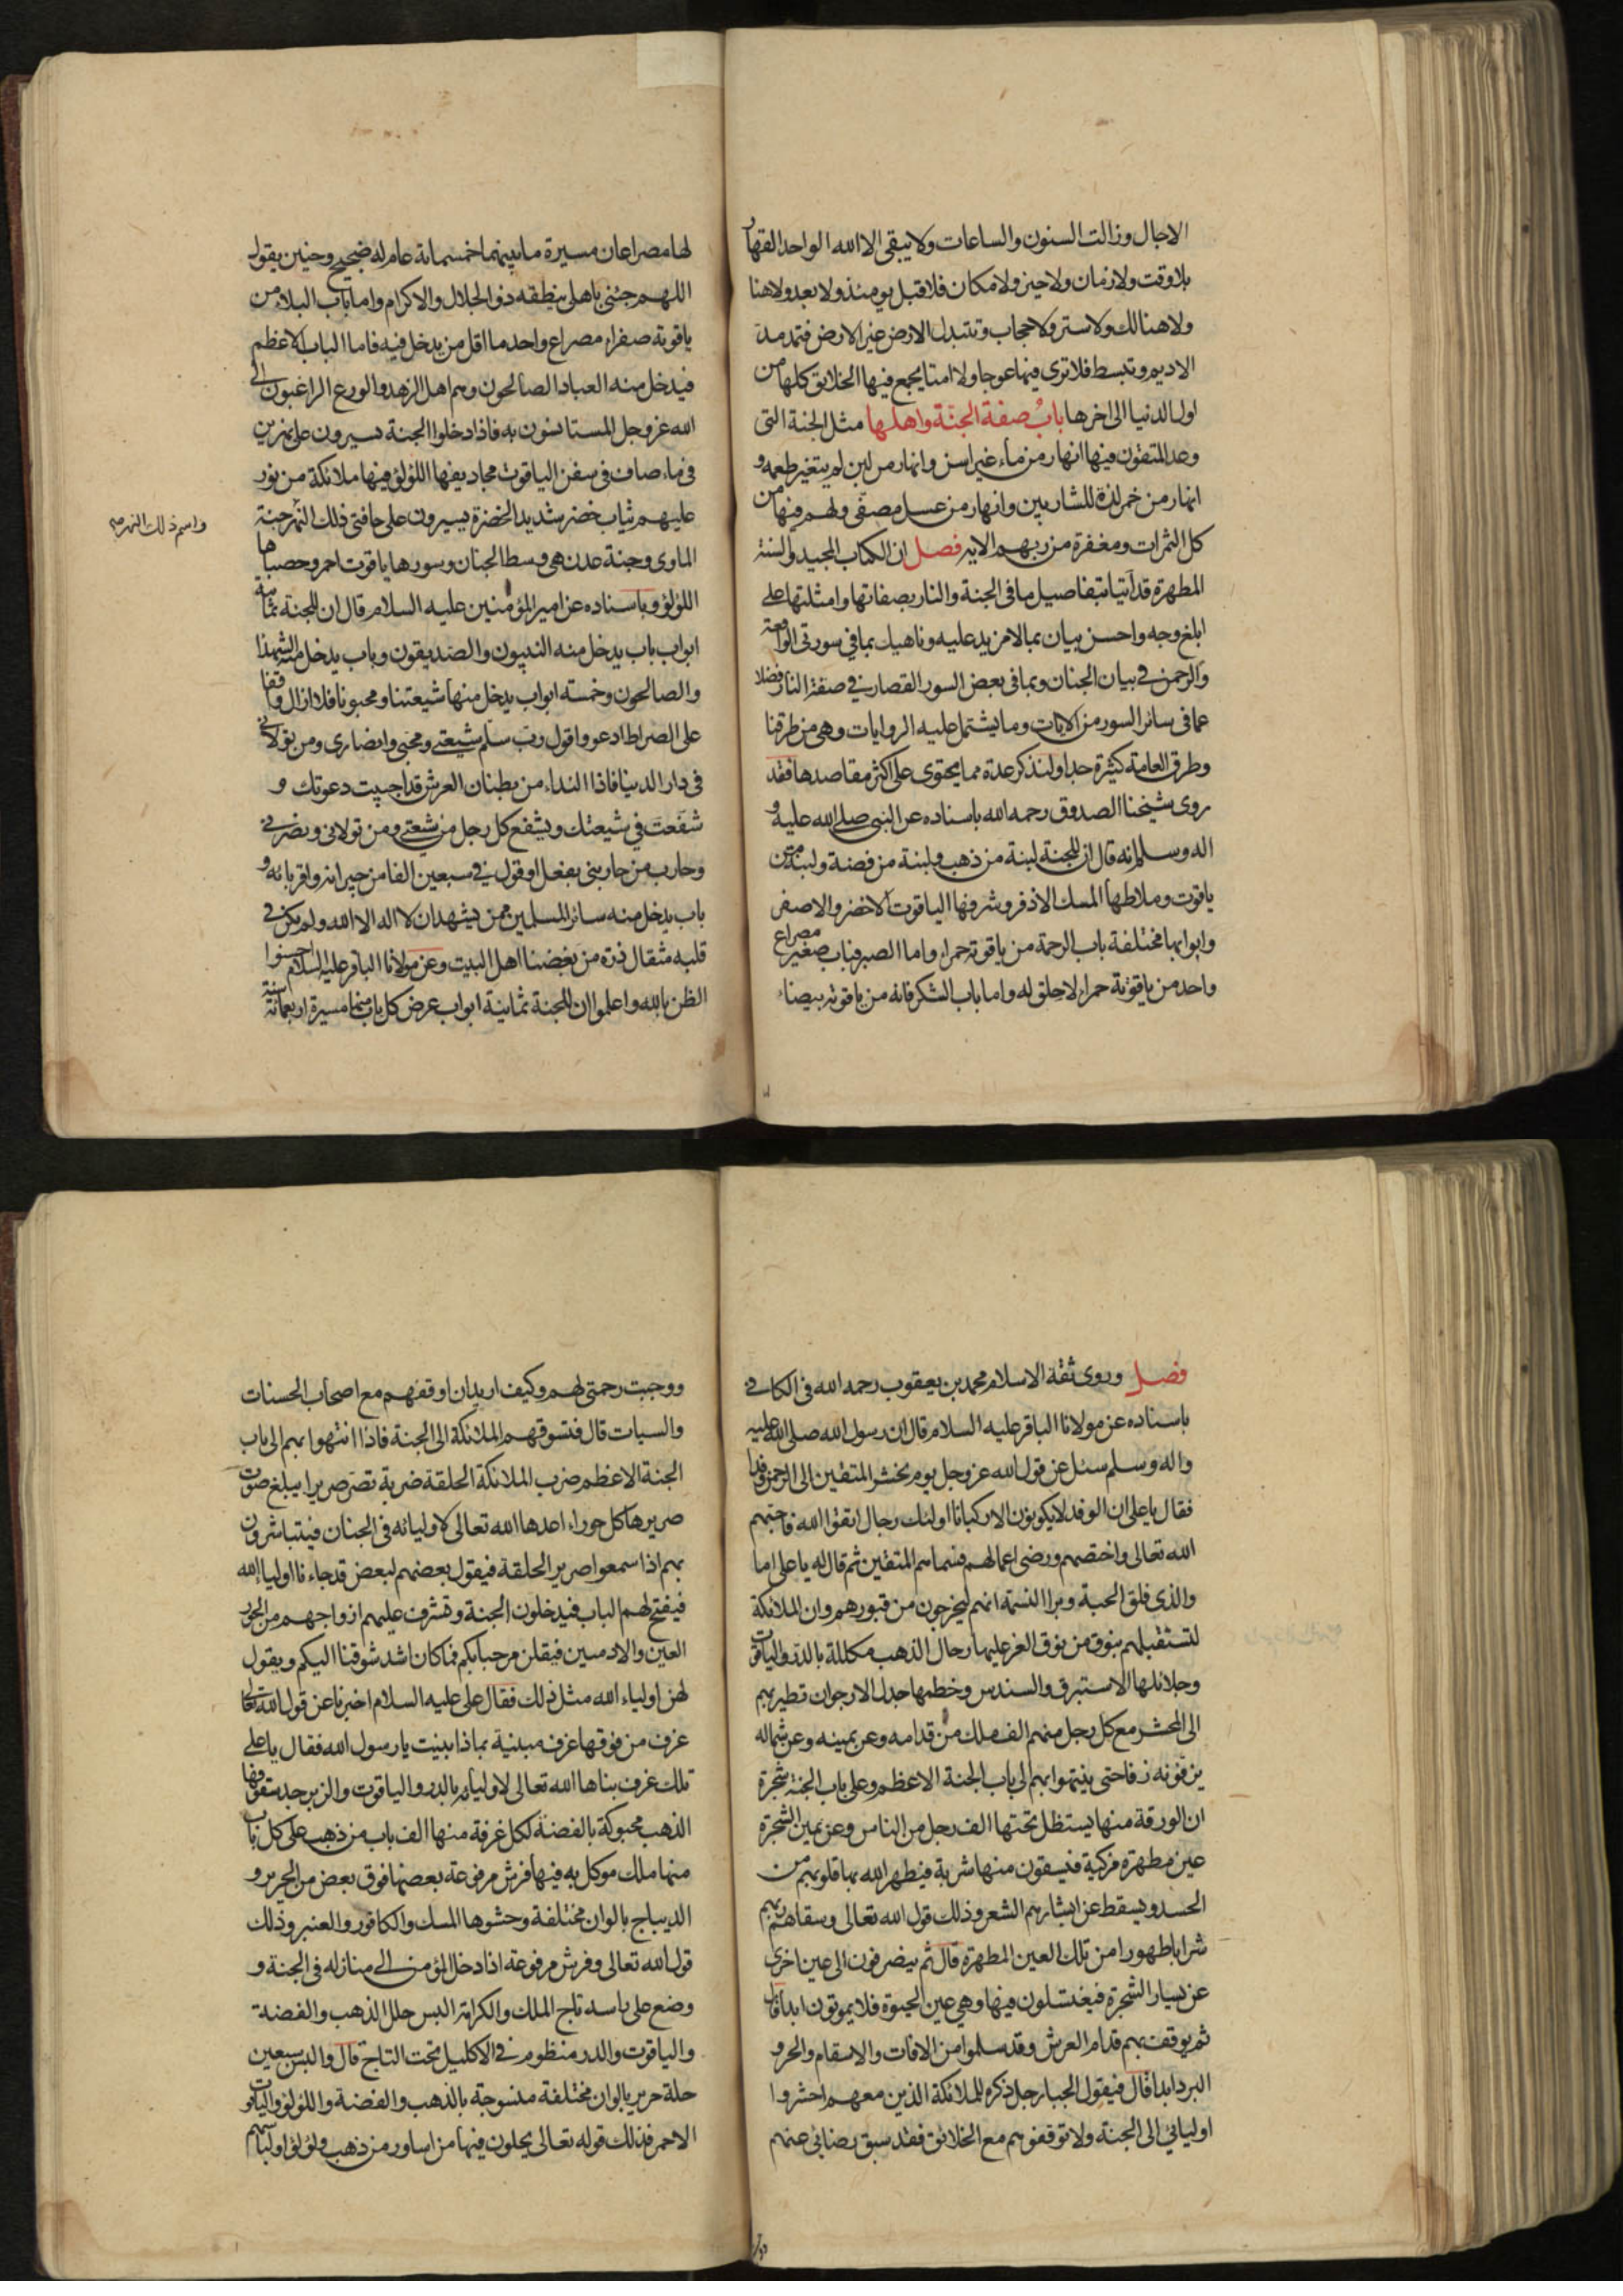 الاجال وزالت السنون والساعات ولا يبقى الا الله الواحد القهار
بلا وقت ولا زمان ولا حين ولا مكان فلا قبل يومئذ ولا بعد ولا هنا
ولا هنالك ولا ستر ولا حجاب وتتبدل الارض غير الارض فتمد مد
الاديم وتبسط فلا ترى فيها عوجا ولا امتا يجمع فيها الخلايق كلها من
اول الدنيا الى اخرها باب صفة الجنة واهلها مثل الجنة التى
وعد المتقون فيها انهار من ماء غير اسن وانهار من لبن لم يتغير طعمه و
انهار من خمر لذة للشاربين وانهار من عسل مصفى ولهم فيها من
كل الثمرات ومغفرة من ربهم الايه فصل ان الكتاب المجيد والسنة
المطهرة قد اتيا بتفاصيل ما فى الجنة والنار بصفاتها وامثلتها على
ابلغ وجه واحسن بيان بما لا مزيد عليه وناهيك بما في سورتى الواقعة
والرحمن في بيان الجنان وبما فى بعض السور القصار في صفة النار فضلا
عما فى سائر السور من الايات وما يشتمل عليه الروايات وهى من طرقنا
وطرق العامة كثيرة جدا ولنذكر عدة مما يحتوى على اكثر مقاصدها فقد
روى شيخنا الصدوق رحمه الله باسناده عن النبى صلى الله عليه و
اله وسلم انه قال ان للجنة لبنة من ذهب ولبنة من فضة ولبنة من
ياقوت وملاطها المسك الاذفر وشرفها الياقوت الاخضر والاصفر
وابوابها مختلفة باب الرحمة من ياقوته حمراء واما الصبر فباب صغير مصراع
واحد من ياقوتة حمراء لا حلق له واما باب الشكر فانه من ياقوته بيضاء
لها مصراعان مسيرة ما بينهما خمسمائة عام له ضجيج وحنين يقول
اللهم جئنى باهلى ينطقه ذو الجلال والاكرام واما باب البلاء من
ياقوتة صفراء مصراع واحد ما اقل من يدخل فيه فاما الباب الاعظم
فيدخل منه العباد الصالحون وهم اهل الزهد والورع الراغبون الى
الله عز وجل المستانسون به فاذا دخلوا الجنة يسيرون على نهرين
فى ماء صاف فى سفن الياقوت مجاديفها اللؤلؤ فيها ملائكة من نور
عليهم ثياب خضر شديد الخضرة يسيرون على حافتى ذلك النهر جنة
واسم ذلك النهر
الماوى وجنة عدن هى وسط الجنان وسورها ياقوت احمر وحصباها
اللؤلؤ وباسناده عن امير المؤمنين عليه السلام قال ان للجنة ثمانية
ابواب باب يدخل منه النبيون والصديقون وباب يدخل منه الشهداء
والصالحون وخمسة ابواب يدخل منها شيعتنا ومحبونا فلا ازال واقفا
على الصراط ادعو واقول رب سلم شيعتى ومحبى وانصارى ومن تولانى
فى دار الدنيا فاذا النداء من بطنان العرش قد اجيبت دعوتك و
شفعت في شيعتك ويشفع كل رجل من شيعتى ومن تولانى ونصرنى
وحارب من حاربنى بفعل او قول في سبعين الفا من جيرانه واقربائه و
باب يدخل منه سائر المسلمين ممن يشهد ان لا اله الا الله ولم يكن في
قلبه مثقال ذرة من بغضنا اهل البيت وعن مولانا الباقر عليه السلام احسنوا
الظن بالله واعلموا ان للجنة ثمانية ابواب عرض كل باب منها مسيرة اربعمائة سنة
فصل وروى ثقة الاسلام محمد بن يعقوب رحمه الله فى الكافى
باسناده عن مولانا الباقر عليه السلام قال ان رسول الله صلى الله عليه
واله وسلم سئل عن قول الله عز وجل يوم نحشر المتقين الى الرحمن وفدا
فقال يا على ان الوفد لا يكونون الا ركبانا اولئك رجال اتقوا الله فاحبهم
الله تعالى واختصهم ورضى اعمالهم فسماهم المتقين ثم قال له يا على اما
والذى فلق الحبة وبرا النسمة انهم ليخرجون من قبورهم وان الملائكة
لتستقبلهم بنوق من نوق العز عليها رحال الذهب مكللة بالدر والياقوت
وجلائلها الاستبرق والسندس وخطمها جدل الارجوان تطير بهم
الى المحشر مع كل رجل منهم الف ملك من قدامه وعن يمينه وعن شماله
يزفونه زفا حتى ينتهوا بهم الى باب الجنة الاعظم وعلى باب الجنة شجرة
ان الورقة منها يستظل تحتها الف رجل من الناس وعن يمين الشجرة
عين مطهرة مزكية فيسقون منها شربة فيطهر الله بها قلوبهم من
الحسد ويسقط عن ابشارهم الشعر وذلك قول الله تعالى وسقاهم ربهم
شرابا طهورا من تلك العين المطهرة قال ثم ينصرفون الى عين اخرى
عن يسار الشجرة فيغتسلون فيها وهي عين الحيوة فلا يموتون ابدا قال
ثم يوقف بهم قدام العرش وقد سلموا من الافات والاسقام والحر و
البرد ابدا قال فيقول الجبار جل ذكره للملائكة الذين معهم احشروا
اوليائي الى الجنة ولا توقفوهم مع الخلائق فقد سبق رضائى عنهم
ووجبت رحمتى لهم وكيف اريد ان اوقفهم مع اصحاب الحسنات
والسيات قال فتسوقهم الملائكة الى الجنة فاذا انتهوا بهم الى باب
الجنة الاعظم ضرب الملائكة الحلقة ضربة تصر صريرا يبلغ صوت
صريرها كل حوراء اعدها الله تعالى لاوليائه فى الجنان فيتباشرون
بهم اذا سمعوا صرير الحلقة فيقول بعضهم لبعض قد جاءنا اولياء الله
فيفتح لهم الباب فيدخلون الجنة وتشرف عليهم ازواجهم من الحور
العين والادميين فيقلن مرحبا بكم فما كان اشد شوقنا اليكم ويقول
لهن اولياء الله مثل ذلك فقال على عليه السلام اخبرنا عن قول الله تعالى
غرف من فوقها غرف مبنية بماذا بنيت يا رسول الله فقال يا على
تلك غرف بناها الله تعالى لاوليائه بالدر والياقوت والزبرجد سقوفها
الذهب محبوكة بالفضة لكل غرفة منها الف باب من ذهب على كل باب
منها ملك موكل به فيها فرش مرفوعة بعضها فوق بعض من الحرير و
الديباج بالوان مختلفة وحشوها المسك والكافور والعنبر وذلك
قول الله تعالى وفرش مرفوعة اذا دخل المؤمن الى منازله فى الجنة و
وضع على راسه تاج الملك والكرامة البس حلل الذهب والفضة
والياقوت والدر منظوم في الاكليل تحت التاج قال والبس سبعين
حلة حرير بالوان مختلفة منسوجة بالذهب والفضة واللؤلؤ والياقوت
الاحمر فذلك قوله تعالى يحلون فيها من اساور من ذهب ولؤلؤا ولباسهم